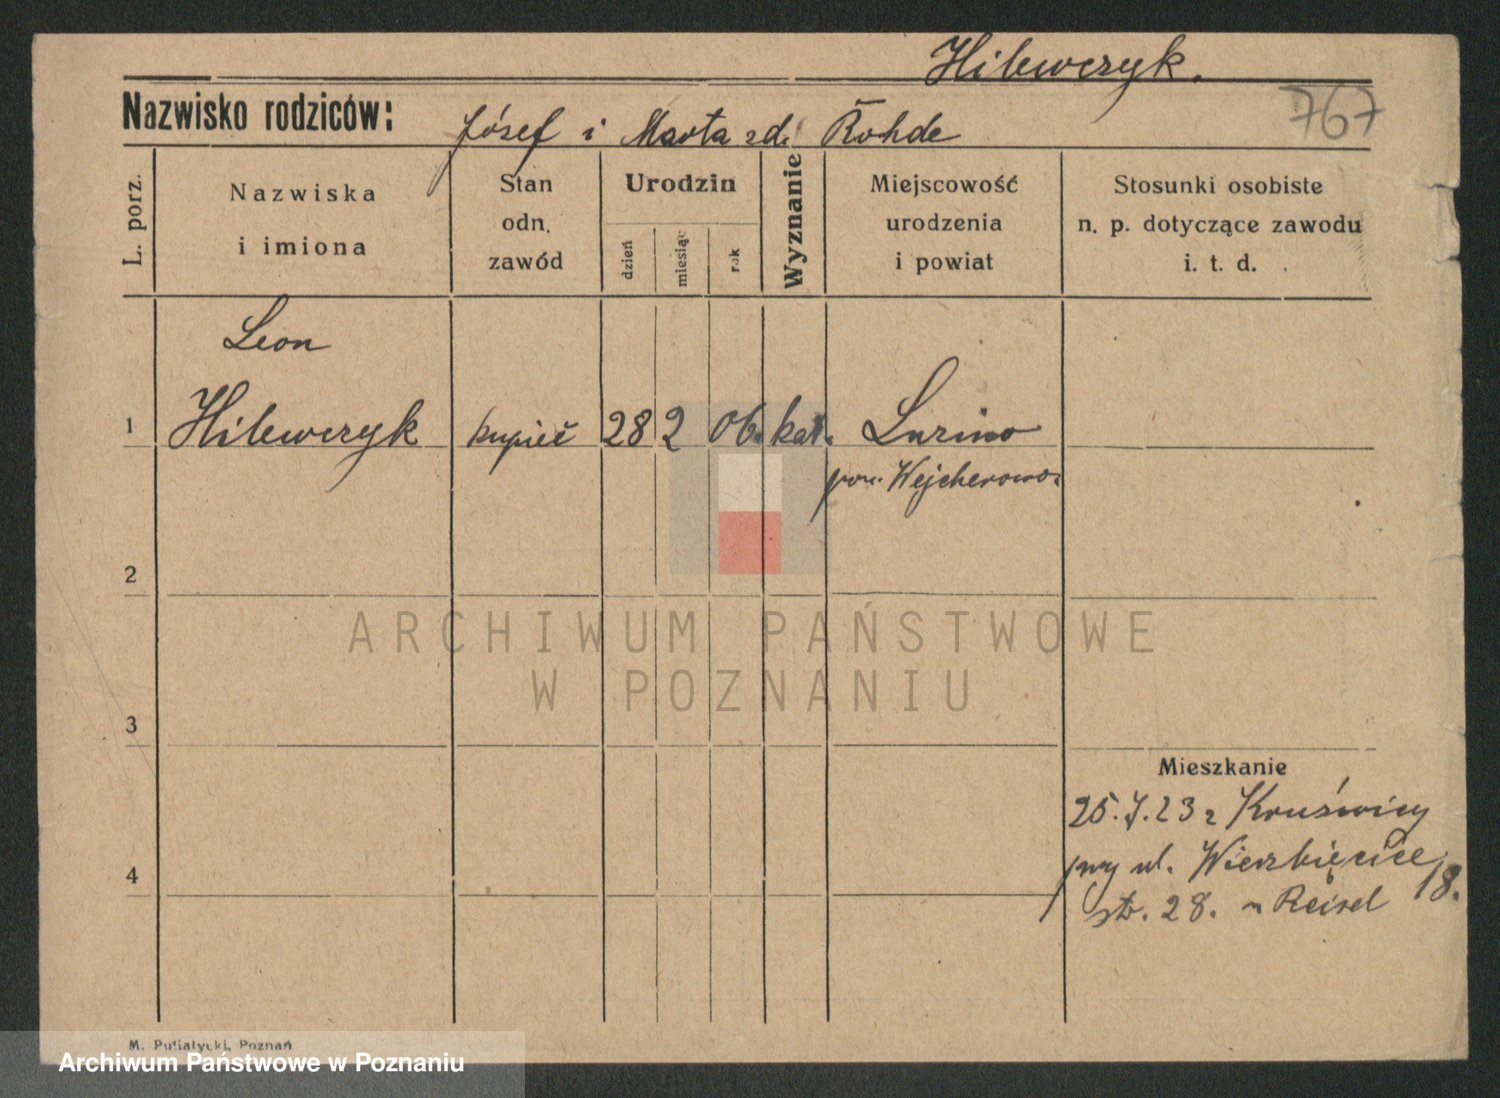 Hilewczyk.
767
Nazwisko rodziców: Józef i Marta zd. Rohde
L. porz.
Nazwiska i imiona
Stan odn. zawód
Urodzin
dzień
miesiąc
rok
Wyznanie
Miejscowość urodzenia i powiat
Stosunki osobiste n. p. dotyczące zawodu i. t. d.
Leon
1 Hilewczyk kupiec 28 2 06. kat.
pow. Wejherowo
2
ARCHIWUM PAŃSTWOWE
W POZNANIU
3
Mieszkanie
25.7.23 z Kruświcy
przy ul. Wierzbięcice 18.
4
str. 28. u Reisel
M. Putiatycki, Poznań
Archiwum Państwowe w Poznaniu